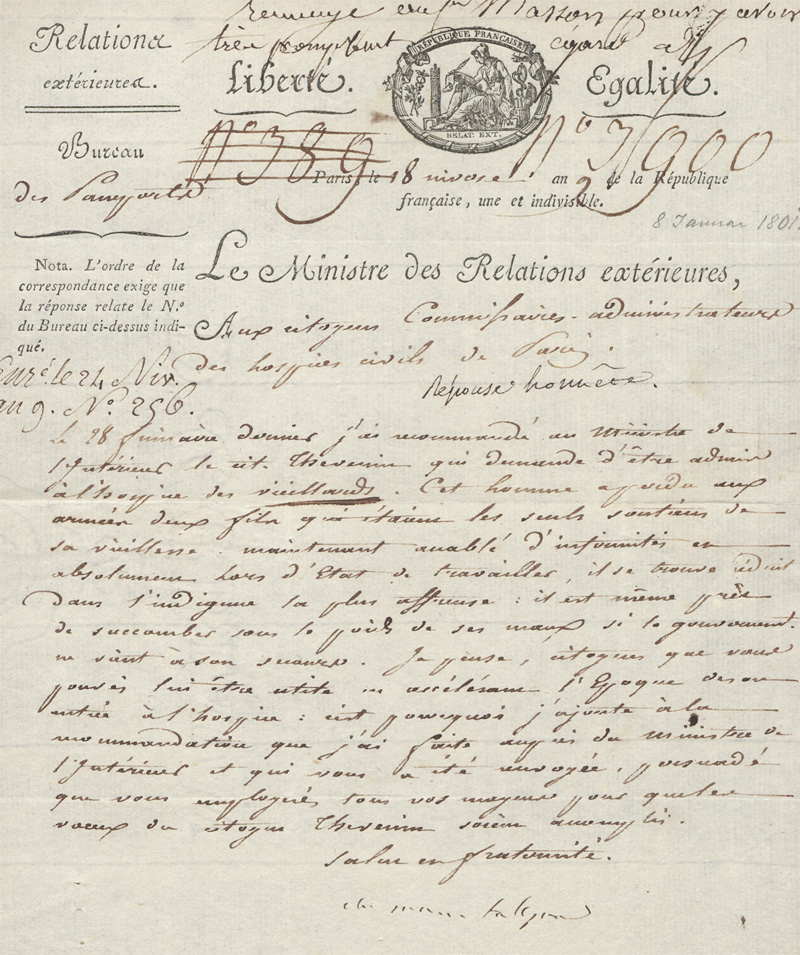 Renvoyé au Cn Masson pour y avoir
très promptement égard
Relations
extérieures.
Liberté.
RÉPUBLIQUE FRANÇAISE
RELAT. EXT.
Egalité.
Bureau
des Passeports
N° 389
N° 3900
Paris, le 18 nivose an 9 de la République
française, une et indivisible.
8 Januar 1801.
Nota. L'ordre de la
correspondance exige que
la réponse relate le N.o
du Bureau ci-dessus indi-
qué.
Le Ministre des Relations extérieures,
Aux citoyens Commissaires-administrateurs
des hospices civils de Paris.
Enré. le 24 Niv.
an 9. N° 256.
réponse honnête.
Le 28 frimaire dernier j'ai recommandé au Ministre de
l'Intérieur le cit. Thevenin qui demande d'être admis
à l'hospice des vieillards. Cet homme a perdu aux
armées deux fils qui étaient les seuls soutiens de
sa vieillesse. maintenant accablé d'infirmités et
absolument hors d'Etat de travailler, il se trouve réduit
dans l'indigence la plus affreuse : il est même près
de succomber sous le poids de ses maux si le gouvernement
ne vient à son secours. Je pense, citoyens que vous
pouvés lui être utile en accélérant l'Epoque de son
entrée à l'hospice : c'est pourquoi j'ajoute à la
recommandation que j'ai faite auprès du Ministre de
l'Intérieur et qui vous a été envoyée, persuadé
que vous employerés tous vos moyens pour que les
voeux du citoyen Thevenin soient accomplis.
Salut et fraternité.
ch. mau. talleyrand